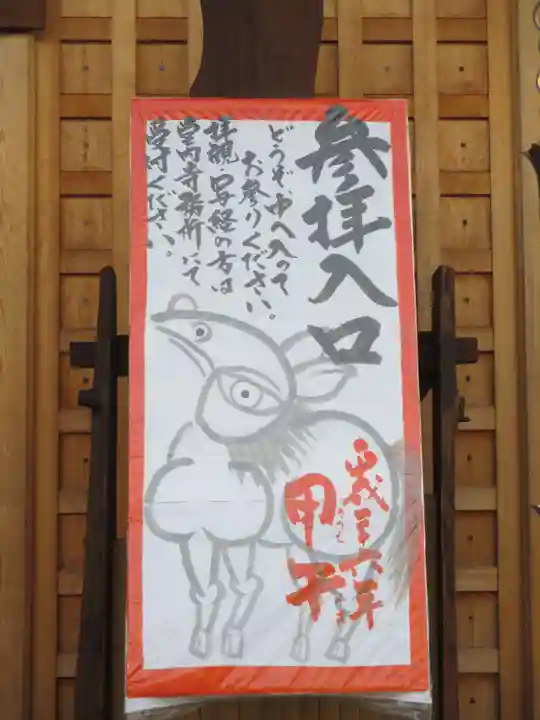 参拝入口
どうぞ、中へ入って
お参りください。
拝観・写経の方は
堂内寺務所にて
受付ください。
平成二六年
甲午